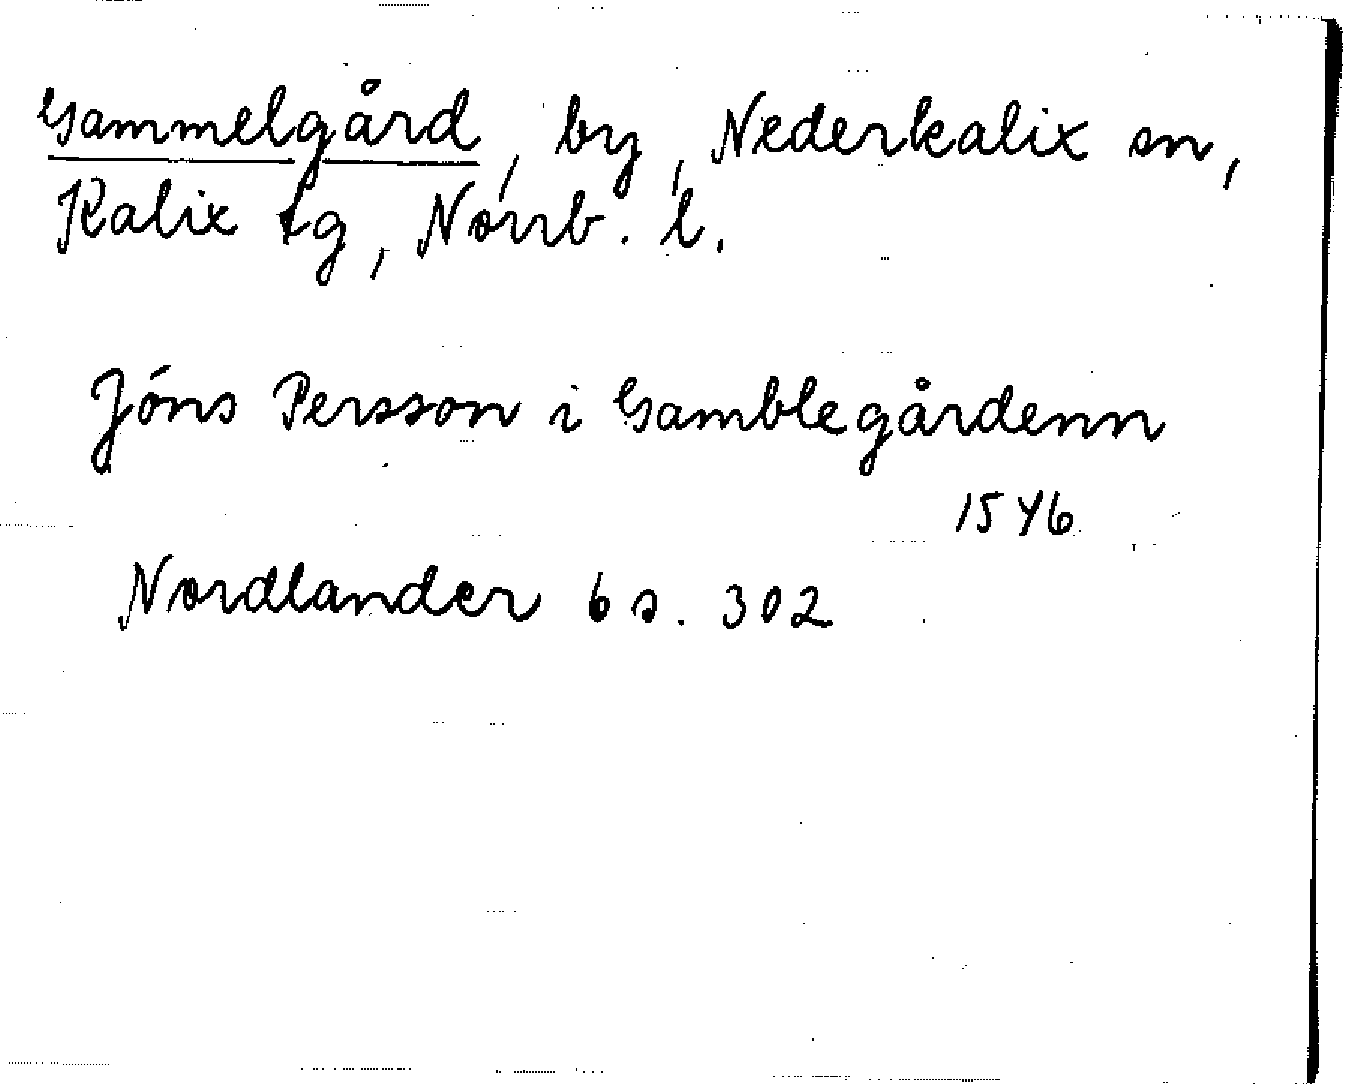 Gammelgård, by, Nederkalix sn,
Kalix tg, Norrb. l.
Jóns Persson i Gamblegårdenn
1546
Nordlander 6 s. 302